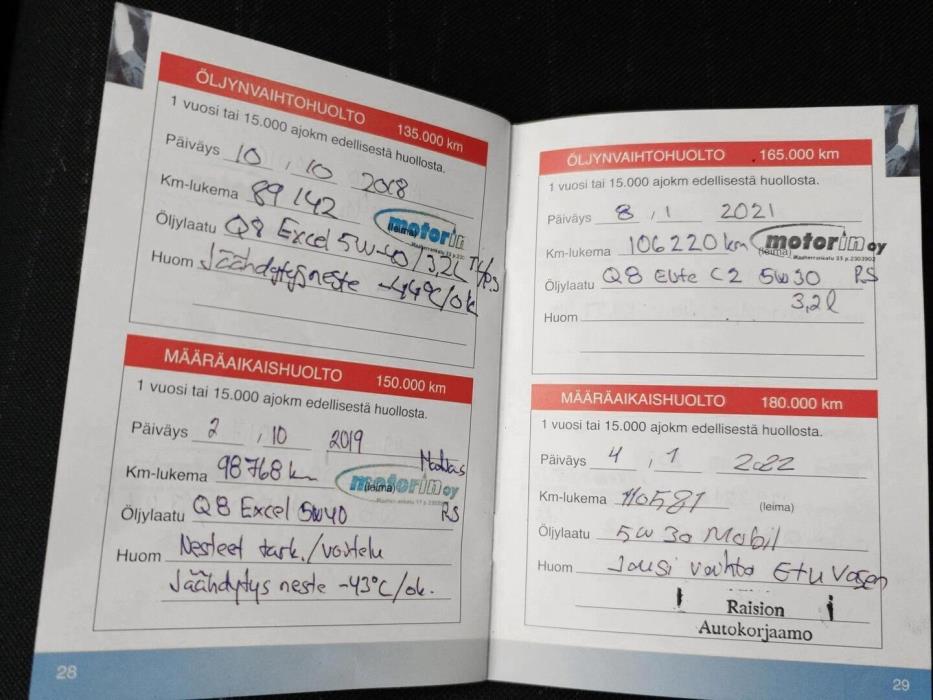 ÖLJYNVAIHTOHUOLTO 135.000 km
1 vuosi tai 15.000 ajokm edellisestä huollosta.
Päiväys 10 , 10 2018
Km-lukema 89142
motorin
(leima)
Öljylaatu Q8 Excel 5W-40 / 3,2L
Huom Jäähdytysneste -44°C/ok
MÄÄRÄAIKAISHUOLTO 150.000 km
1 vuosi tai 15.000 ajokm edellisestä huollosta.
Päiväys 2 , 10 2019
Km-lukema 98768 km
motorin oy
(leima)
Öljylaatu Q8 Excel 5W40 RS
Huom Nesteet tark./voitelu
Jäähdytys neste -43°C/ok.
28
ÖLJYNVAIHTOHUOLTO 165.000 km
1 vuosi tai 15.000 ajokm edellisestä huollosta.
Päiväys 8 , 1 2021
Km-lukema 106220 km motorin oy
(leima)
Öljylaatu Q8 Elite C2 5W30 RS
3,2l
Huom
MÄÄRÄAIKAISHUOLTO 180.000 km
1 vuosi tai 15.000 ajokm edellisestä huollosta.
Päiväys 4 , 1 2022
Km-lukema 110581 (leima)
Öljylaatu 5W30 Mobil
Huom Jousi vaihto Etu Vasen
Raision
Autokorjaamo
29